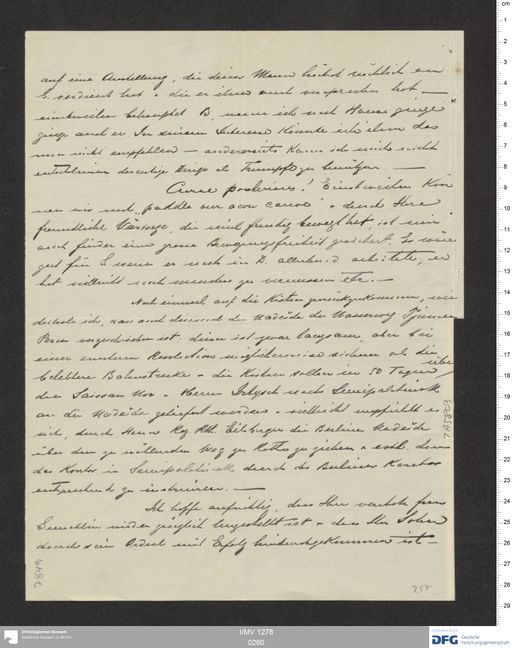 auf eine Anstellung, die dieser Mann höchst rechtlich an
S. verdient hat & die er ihm auch versprochen hat —
einstweilen behauptet B, wenn ich nach Hause ginge
ginge auch er. In seinem Interesse könnte ich ihm das
nun nicht empfehlen — andererseits kann ich mich nicht
entschliessen derartige Dinge als Trumpf zu benützen. —
Curae posteriores! Einstweilen kön
nen wir mit „paddle our own canoe" & durch Ihre
freundliche Vorsorge, die mich freudig bewegt hat, ist mir
auch finder eine grosse Bewegungsfreiheit gesichert. Es wäre
gut für wenn er noch in D. arbeitete, er
hat vielleicht noch manches zu vermessen etc. —
Noch einmal auf die Kisten zurückzukommen, wie
derhole ich, dass auch diesmal der Nadeschda der Wasserweg
vorgeschrieben ist; dieser ist zwar langsam, aber bei
einer Revolution möglicherweise sicherer als die
belebtere Bahnstrecke & die Kisten sollen in 50 Tagen über
den Saissan Nor & Herrn nach Semipalatinsk
an die Nadeschda geliefert werden & vielleicht empfiehlt es
sich, durch Herrn Reg. Rth. die Berliner Nadeschda
über den zu wählenden Weg zu Rathe zu ziehen & evtl. dann
das Kontor in Semipalatinsk durch das Berliner Kontor
entsprechend zu instruieren. —
Ich hoffe aufrichtig, dass Ihre verehrte Frau
Gemahlin wieder gänzlich hergestellt ist & dass Ihr Sohn
durch sein mit Erfolg hindurchgekommen ist —
7849
257
I/MV 1278
0260
Ethnologisches Museum
Staatliche Museen zu Berlin
DFG
Deutsche
Forschungsgemeinschaft
cm
1
2
3
4
5
6
7
8
9
10
11
12
13
14
15
16
17
18
19
20
21
22
23
24
25
26
27
28
29